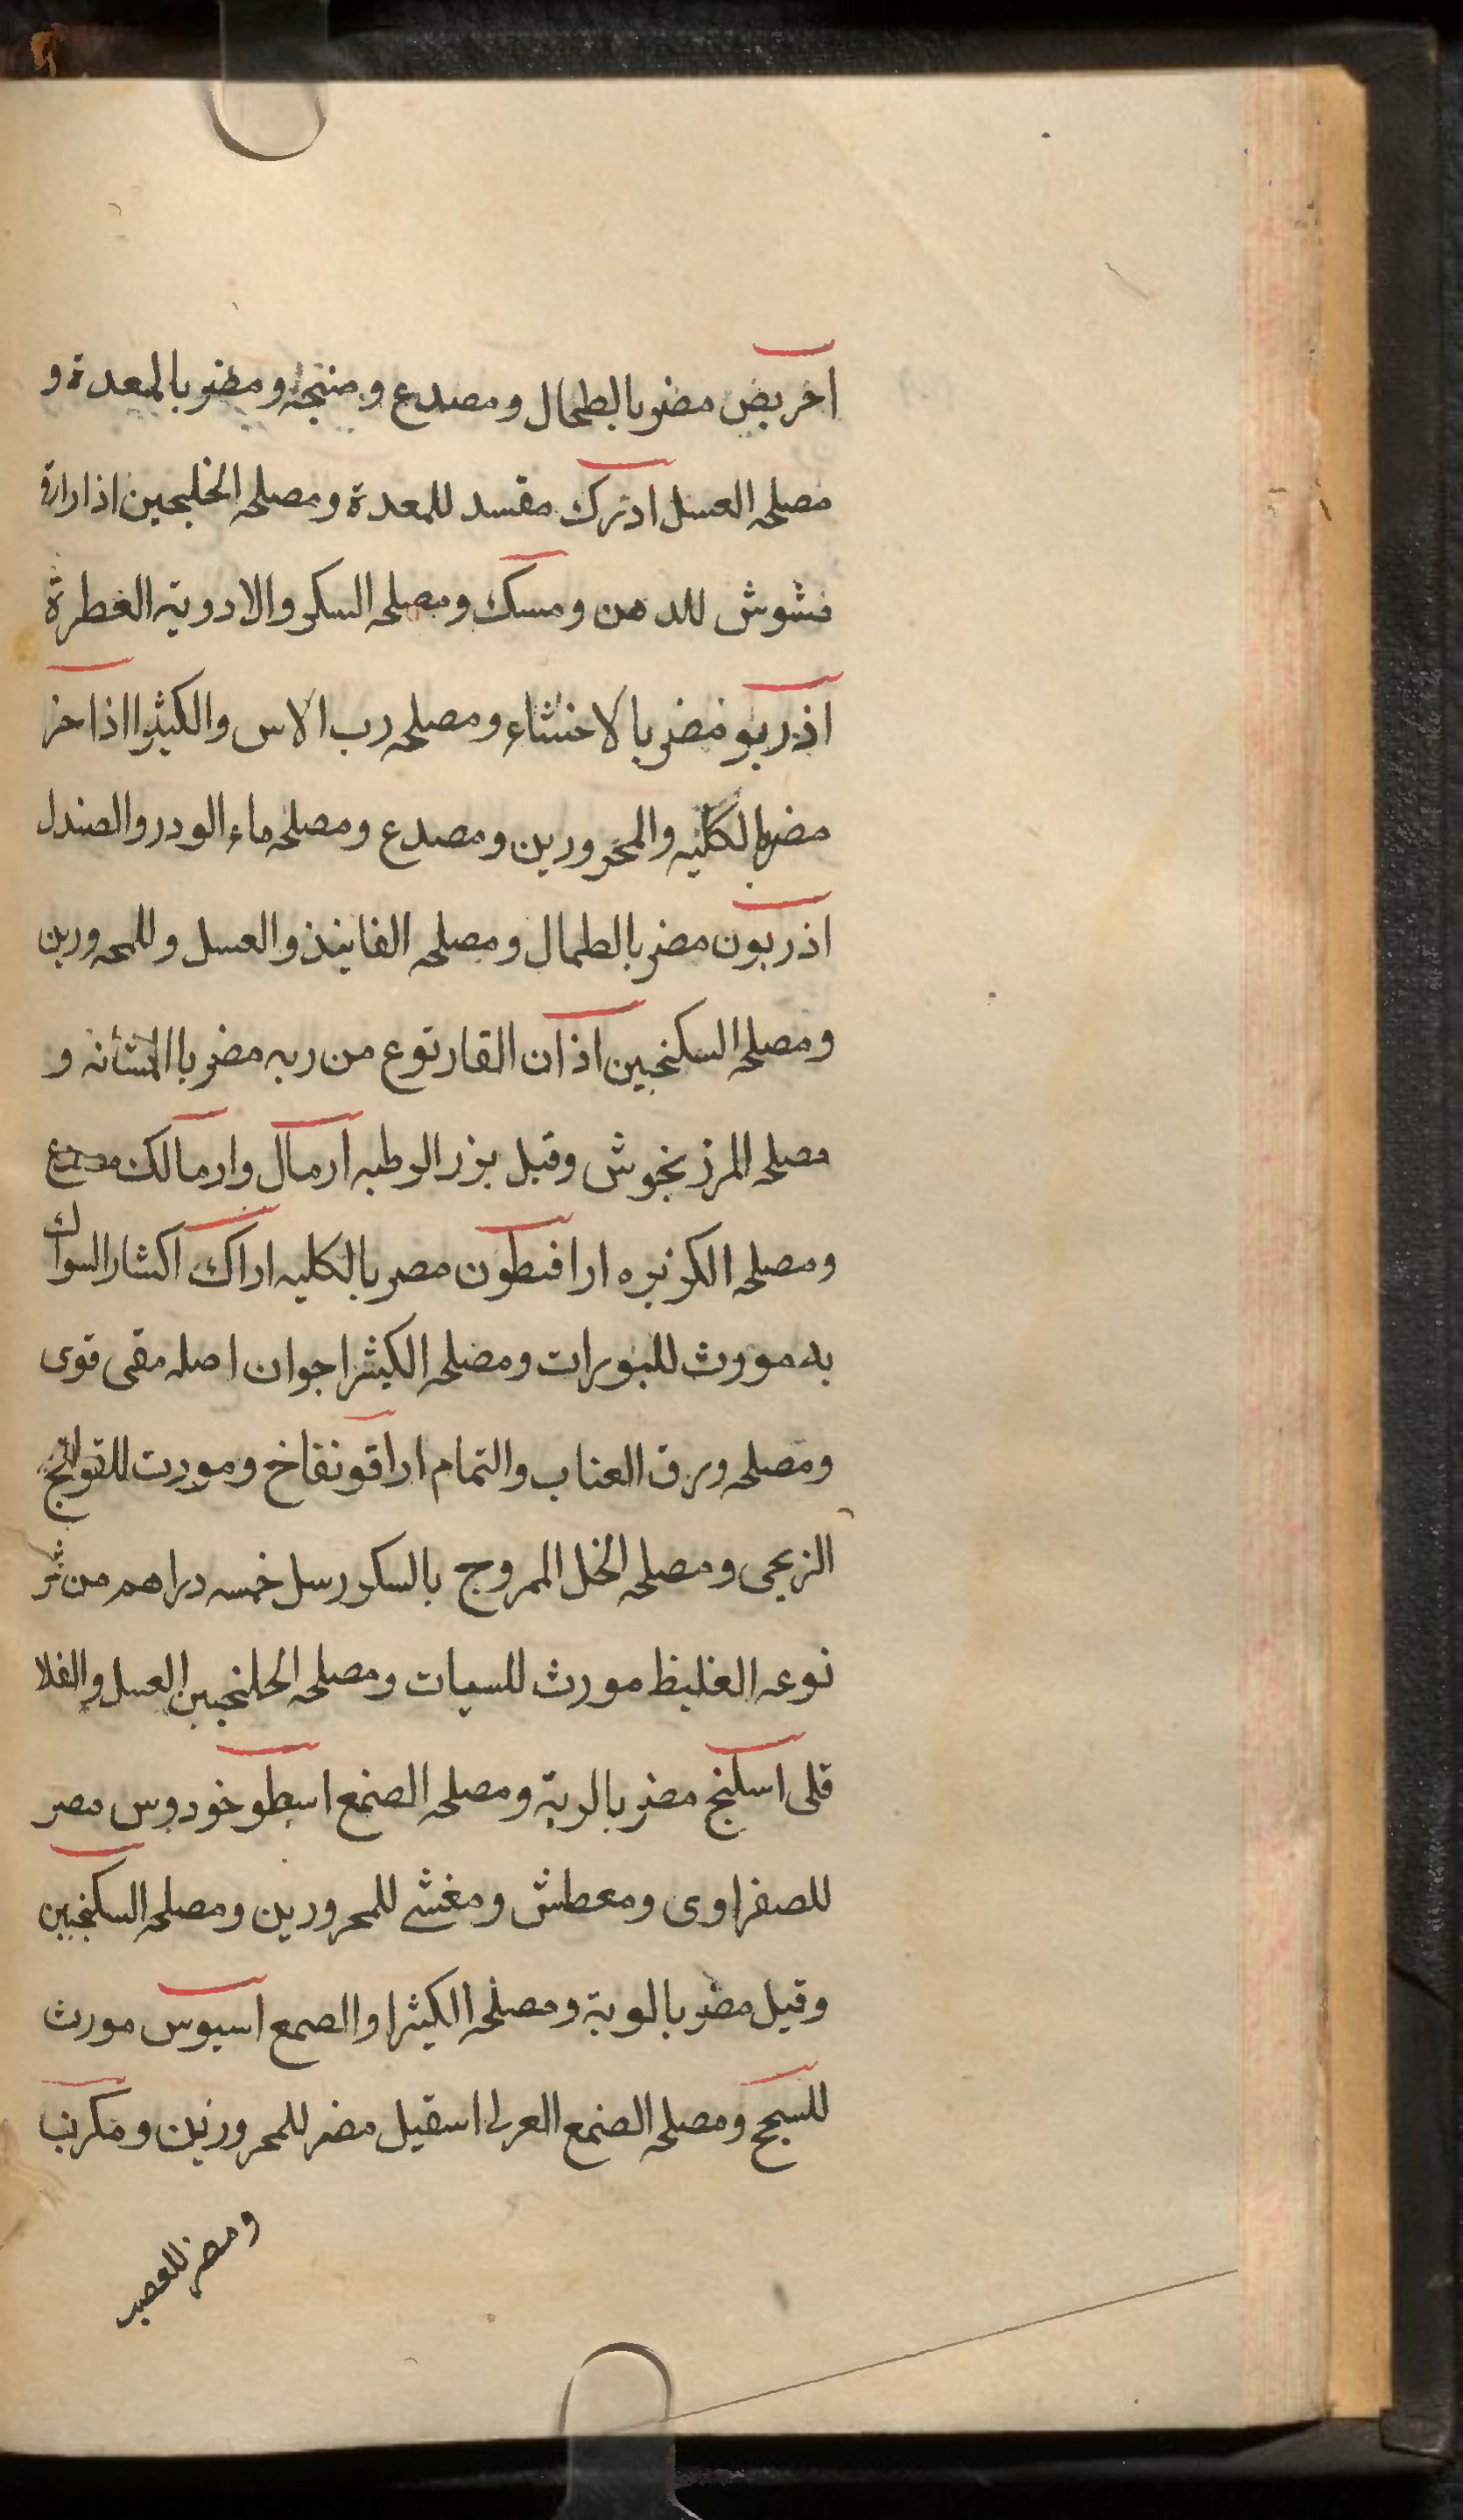 اخريض مضر بالطحال ومصدع و منتجه ومضر بالمعدة و
مصلحه العسل ادترك مفسد للمعدة ومصلحه الخليجين اذاراقى
مشوش للدهن ومسك ومصلحه السكر والادويته العطرة
اذربو مضر بالاحشاء ومصلحه رب الاس والكيثرا اذاخر
مضر بالكليه والمحرورين ومصدع ومصلحه ماء الودر والصندل
اذربون مضر بالطحال ومصلحه الفانيذ والعسل وللمحرورين
ومصلحه السكنجين اذان الفار نوع من ربه مضر باالمثانه و
مصلحه المرزنجوش وقيل بزر الرطبه ارمال وارمالك مصدع
ومصلحه الكزبره ارافيطون مضر بالكليه اراك اكثار السواك
به مورث للبورات ومصلحه الكيثرا جوان اصله مقى قوى
ومصلحه ورق العناب والتمام اراقو نفاخ ومورت للقولنج
الزيحى ومصلحه الخل الممروج بالسكر رسل خمسه دراهم من ثمر
نوعه الغليظ مورث للسبات ومصلحه الحلنجبين العسل والفلا
قلى اسكنج مضر بالرية ومصلحه الصنمع اسطوخودوس مضر
للصفراوى ومعطش ومغشى للمحرورين ومصلحه السكنجبين
وقيل مضر بالرية ومصلحه الكيثرا والصمع اسيوس مورث
للسحج ومصلحه الصنمع العربى اسقيل مضر للمحرورين ومكرب
ومضر للعصب